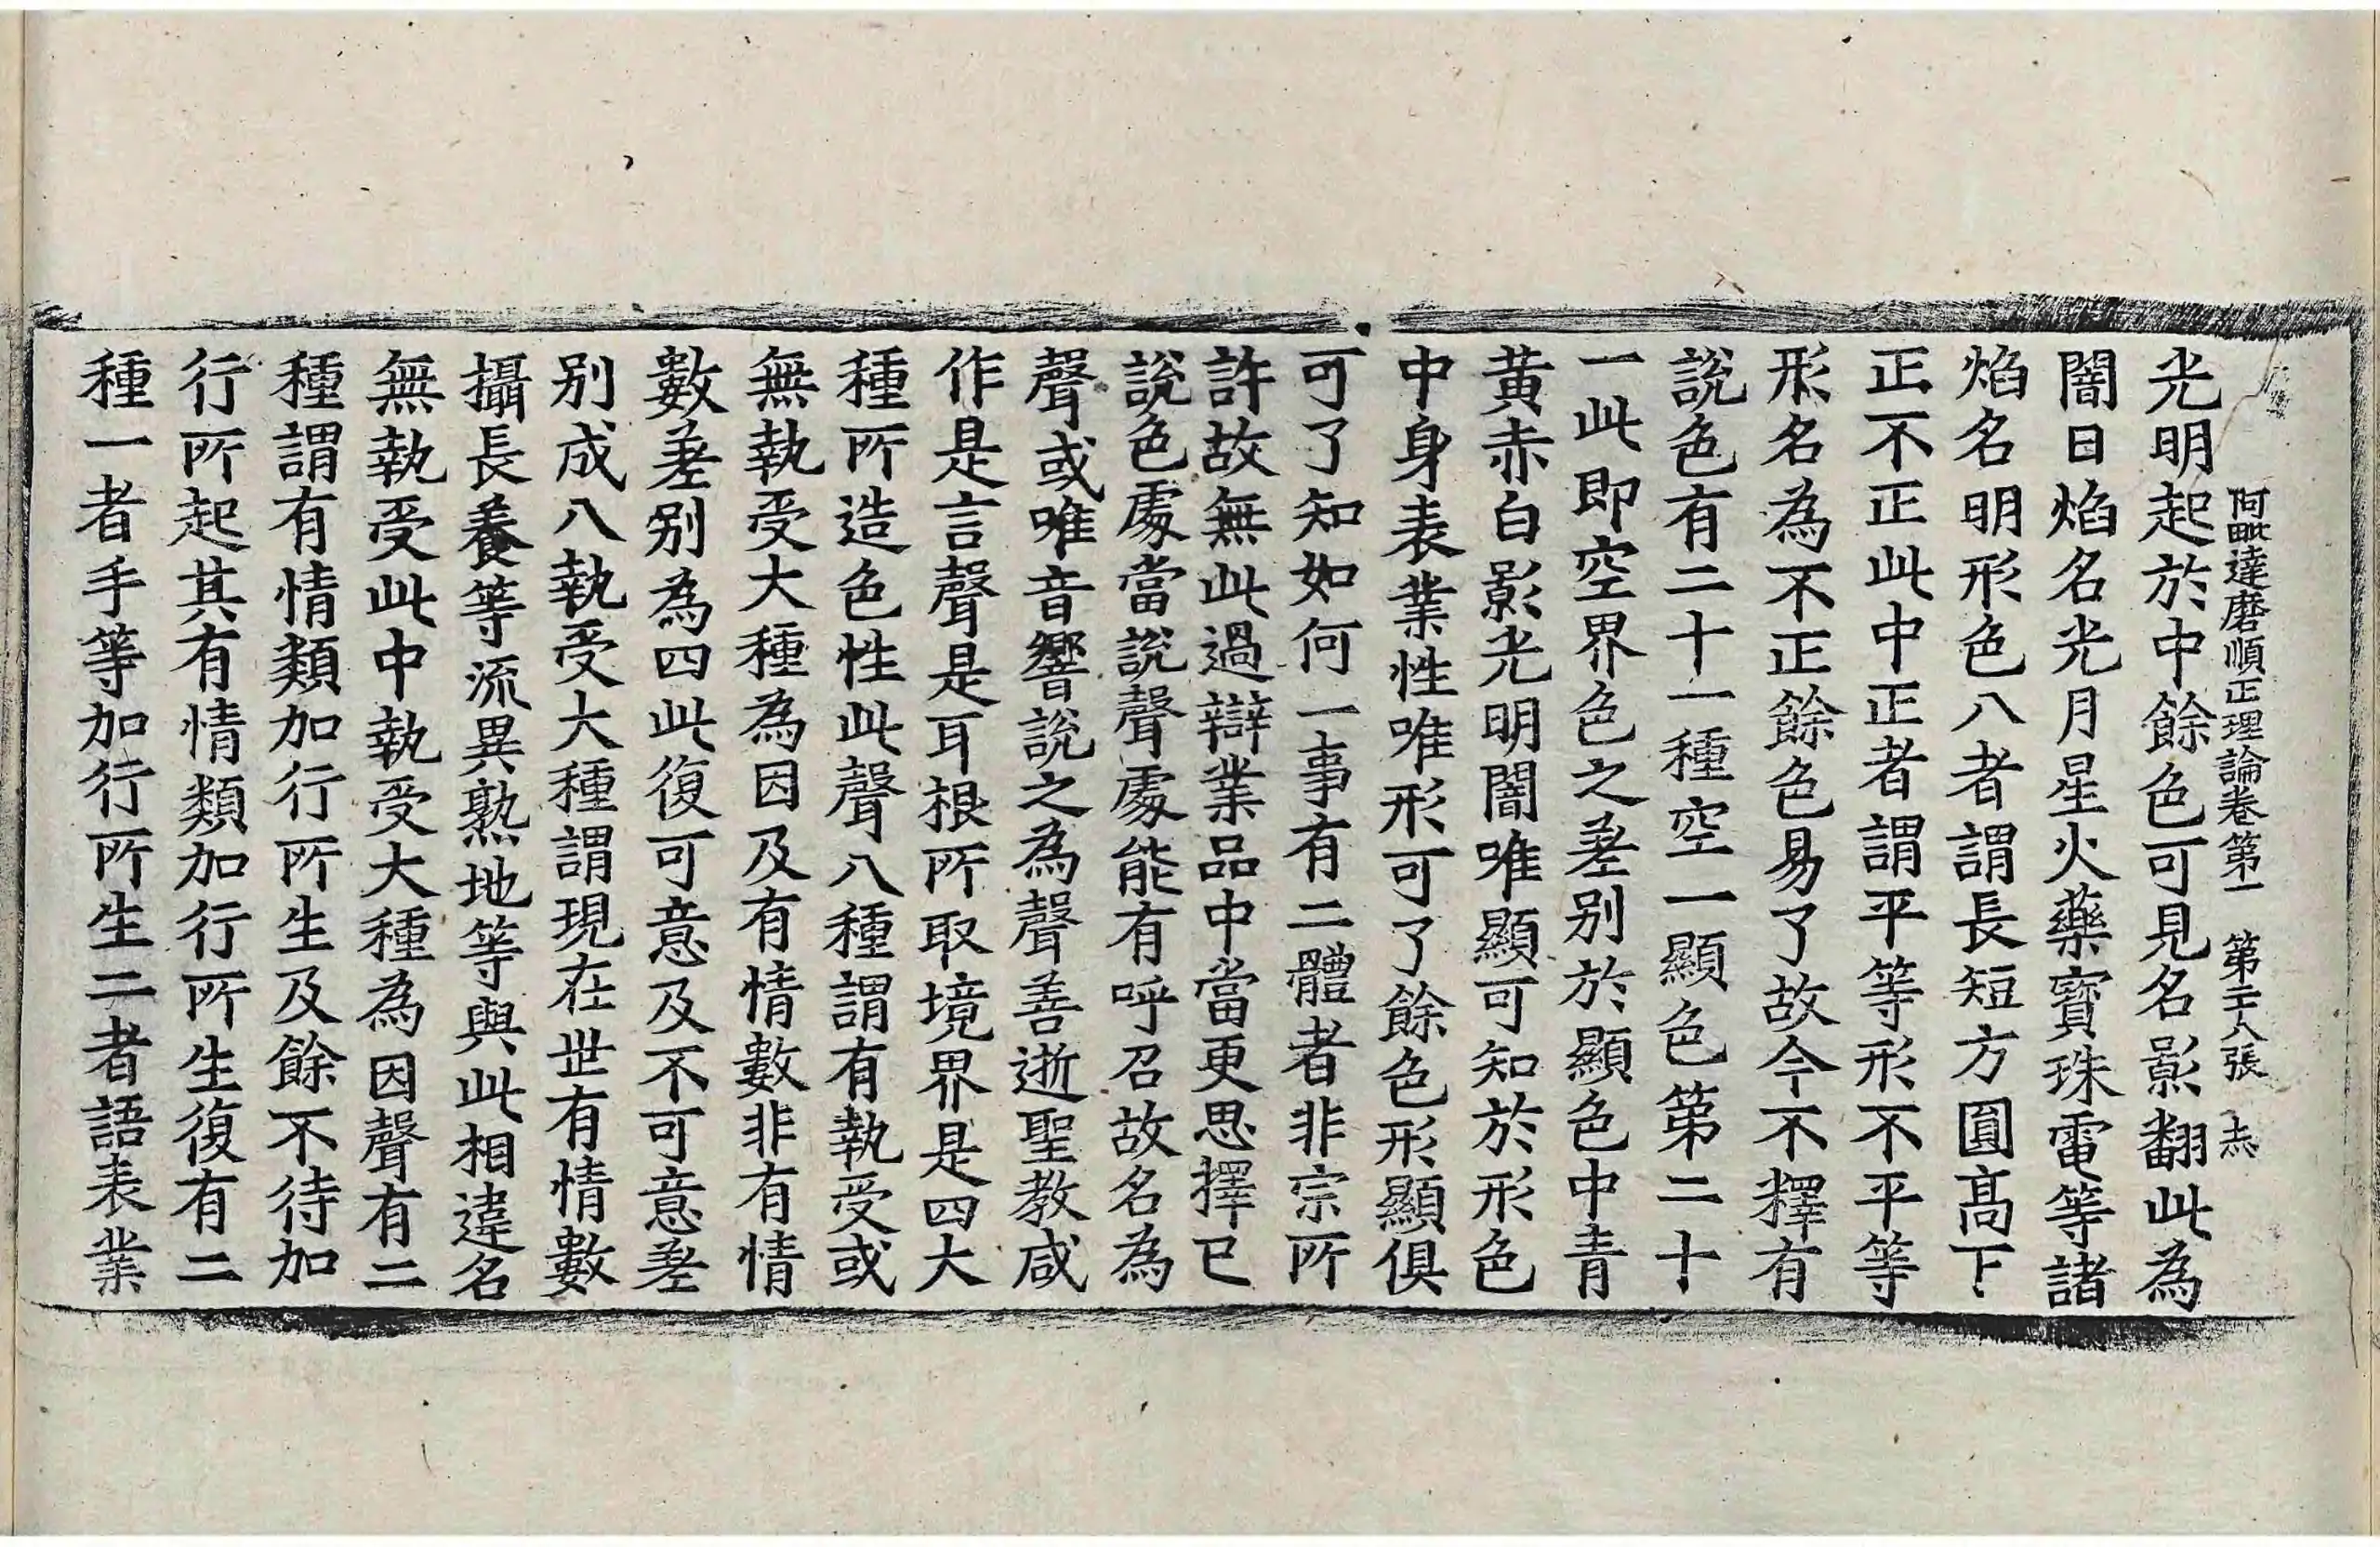 阿毗達磨順正理論卷第一　第二十八張
光明起於中餘色可見名影翻此為
闇日焰名光月星火藥寶珠電等諸
焰名明形色八者謂長短方圓高下
正不正此中正者謂平等形不平等
形名為不正餘色易了故今不釋有
說色有二十一種空一顯色第二十
一此即空界色之差別於顯色中青
黃赤白影光明闇唯顯可知於形色
中身表業性唯形可了餘色形顯俱
可了知如何一事有二體者非宗所
許故無此過辯業品中當更思擇已
說色處當說聲處能有呼召故名為
聲或唯音響說之為聲善逝聖教咸
作是言聲是耳根所取境界是四大
種所造色性此聲八種謂有執受或
無執受大種為因及有情數非有情
數差別為四此復可意及不可意差
別成八執受大種謂現在世有情數
攝長養等流異熟地等與此相違名
無執受此中執受大種為因聲有二
種謂有情類加行所生及餘不待加
行所起其有情類加行所生復有二
種一者手等加行所生二者語表業